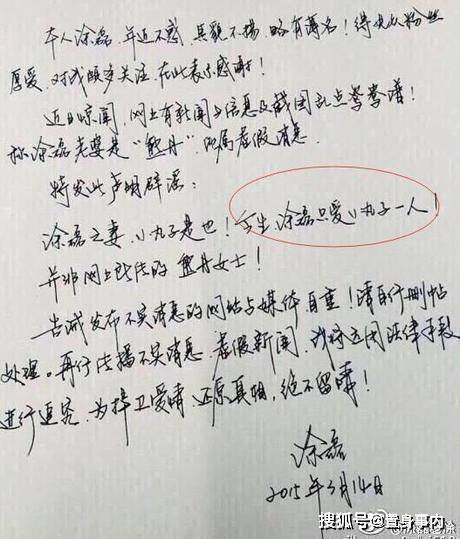 本人涂磊,年近不惑,其貌不扬,略有薄名!得众粉丝
厚爱,对我颇多关注,在此表示感谢!
近日惊闻,网上有新闻与信息及截图乱点鸳鸯谱!
称涂磊老婆是“熊丹”,此属虚假消息
特发此声明辟谣:
涂磊之妻,小丸子是也!今生,涂磊只爱小丸子一人!
并非网上所传的熊丹女士!
告诫发布不实消息的网站与媒体,自重!请自行删帖
处理。再行传播不实消息,虚假新闻,我将运用法律手段
进行追究,为捍卫爱情,还原真相,绝不留情!
涂磊
2015年3月14日
搜狐号@置身事内